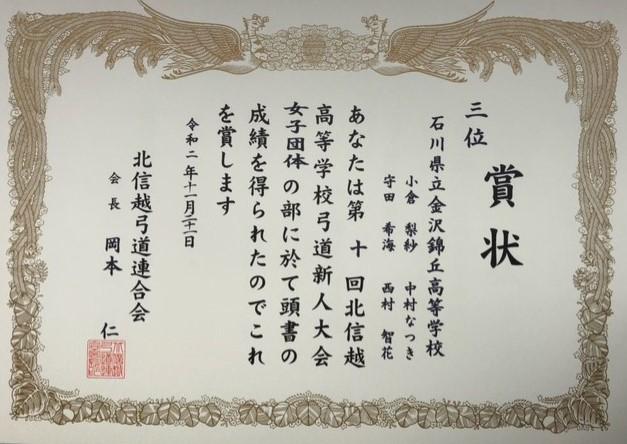 賞状
三位
石川県立金沢錦丘高等学校
小倉 梨紗 中村なつき
守田 希海 西村 智花
あなたは第十回北信越
高等学校弓道新人大会
女子団体の部に於て頭書の
成績を得られたのでこれ
を賞します
令和二年十一月二十一日
北信越弓道連合会
会長 岡本 仁